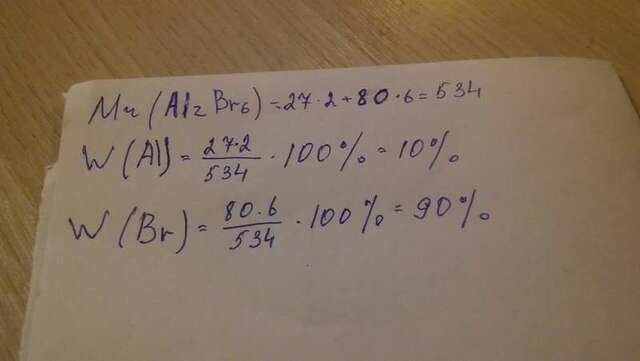 Mr (Al₂ Br₆) = 27·2+80·6=534
W (Al) = 27·2/534 · 100% = 10%
W (Br) = 80·6/534 · 100% = 90%